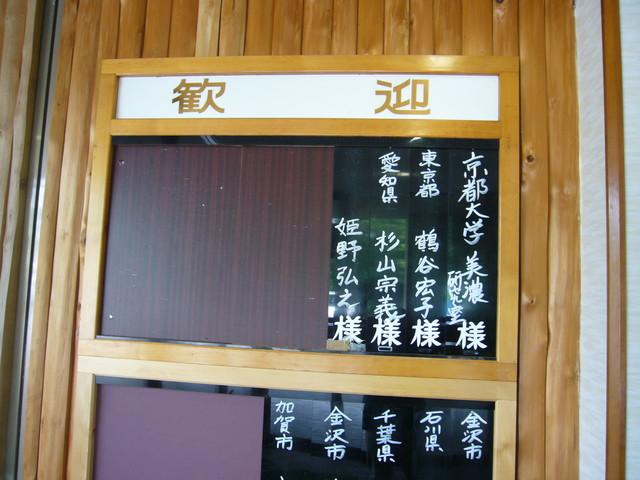 歓迎
京都大学 美濃研究室 様
東京都 鶴谷宏子 様
愛知県 杉山宗義 様
姫野弘之 様
金沢市
石川県
千葉県
金沢市
加賀市